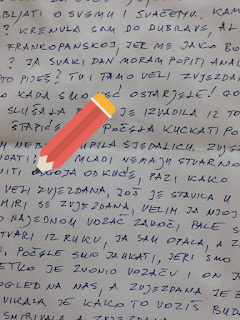 BLJATI O SVEMU I SVAČEMU. KAM
? KRENULA SAM DO DUBRAVE, AL
FRANKOPANSKOJ, JER ME JAKO BO
? JA SVAKI DAN MORAM POPITI ANAL
TO PIJEŠ? TU I TAMO VELI ZVJEZDA
O KADA SMO VEĆ OSTARJELE! GO
SLUŠALA JE IZVADILA IZ TO
ŠTAPIĆE POČELA KUCKATI PO
M NEB KUPILA SJEDALICU. ZVJEZD
DATI MLADI NEMAJU STVARNO
ITI GOJA OD KUĆE, PAZI KAKO
VELI ZVJEZDANA, JOŠ JE STAVILA U
MIRI SE ZVJEZDANA, VELIM JA NJOJ
O NAJEDNOM VOZAČ ZAKOČI, PALE S
TVARI IZ RUKU, JA SAM OPALA, A Z
E. POČELE SMO JAUKATI, JER SMO
ETKO JE ZVONIO VOZAČU I ON J
OGLED NA NAS, A ZVJEZDANA JE
VIKALA JE KAKO TO VOZIŠ BUD
A ZVJEZDANA